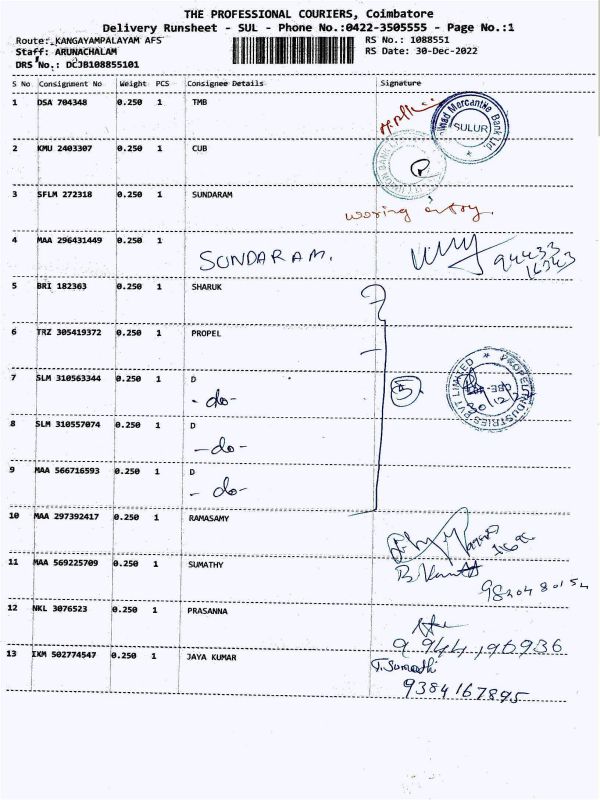 THE PROFESSIONAL COURIERS, Coimbatore
Delivery Runsheet - SUL - Phone No.:0422-3505555 - Page No.:1
Route: KANGAYAMPALAYAM AFS RS No.: 1088551
Staff: ARUNACHALAM RS Date: 30-Dec-2022
DRS No.: DCJB108855101
S No Consignment No Weight PCS Consignee Details Signature
1 DSA 704348 0.250 1 TMB
Mercantile Bank Ltd.
SULUR
2 KMU 2403307 0.250 1 CUB
3 SFLM 272318 0.250 1 SUNDARAM
woring entry
4 MAA 296431449 0.250 1
SUNDARAM. 94433
16343
5 BRI 182363 0.250 1 SHARUK
6 TRZ 305419372 0.250 1 PROPEL
7 SLM 310563344 0.250 1 D
-do- 5
PROPEL INDUSTRIES PVT LIMITED
8 SLM 310557074 0.250 1 D
-do-
9 MAA 566716593 0.250 1 D
- do-
10 MAA 297392417 0.250 1 RAMASAMY
11 MAA 569225709 0.250 1 SUMATHY
12 NKL 3076523 0.250 1 PRASANNA
13 IKM 502774547 0.250 1 JAYA KUMAR
T. Sumathi
9384167895